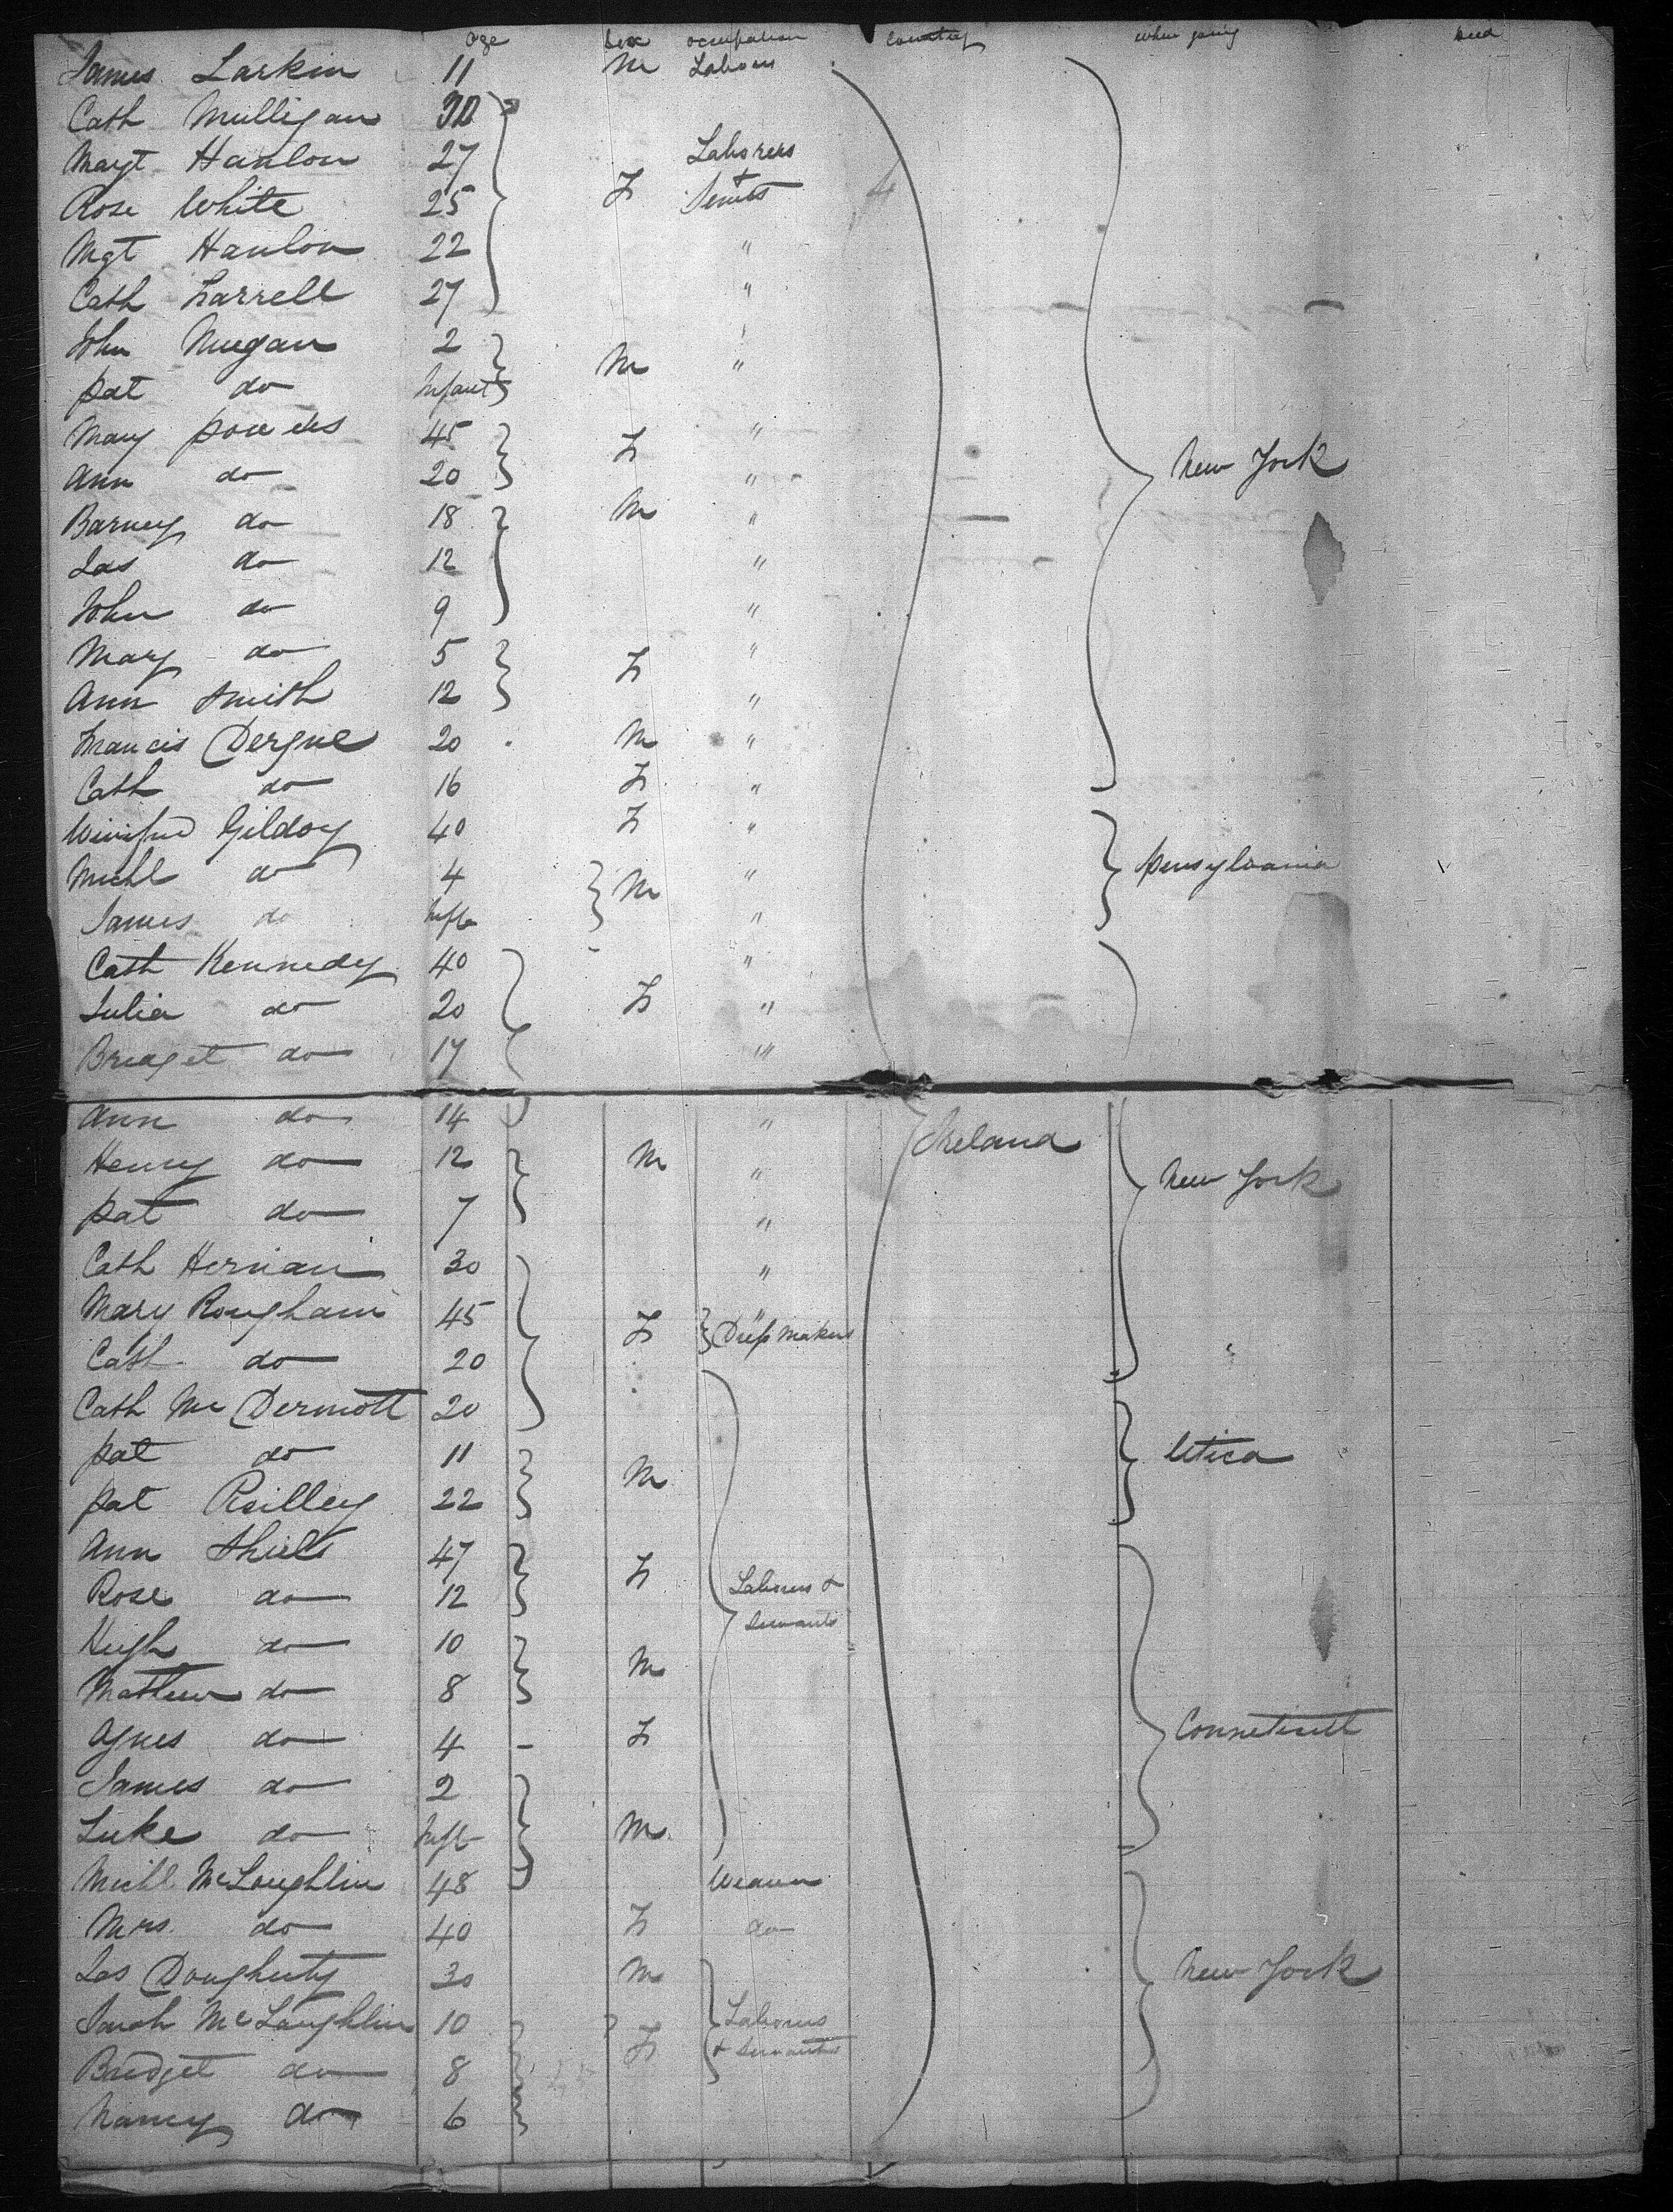 age sex occupation Country where going died
James Larkin 11 M Laborer
Cath Mulligan 30
Margt Hanlon 27 Laborers
Rose White 25 F + Servts
Mgt Hanlon 22 "
Cath Farrell 27 "
John Nugan 2 "
Pat do Infant M "
Mary Powers 45 "
Ann do 20 F " New York
Barney do 18 M "
Jas do 12 "
John do 9 "
Mary do 5 F "
Ann Smith 12 "
Francis Dergue 20 M "
Cath do 16 F "
Winifred Gildoy 40 F "
Michl do 4 M " Pensylvania
James do Inft "
Cath Kennedy 40 "
Julia do 20 F "
Bridget do 17 "
Ann do 14 " Ireland
Henry do 12 M " New York
Pat do 7 "
Cath Hernan 30 "
Mary Rougham 45 F " Dress Makers
Cath do 20 "
Cath McDermott 20
Pat do 11 M Utica
Pat Reilley 22
Ann Shiels 47 F
Rose do 12 Laborers +
Hugh do 10 Servants
Mathew do 8 M
Agnes do 4 - F Conneticutt
James do 2
Luke do Inft M
Michl McLoughlin 48 Weaver
Mrs. do 40 F do
Jas Dougherty 30 M New York
Sarah McLaughlin 10 Laborers
Bridget do 8 F + Servants
Nancy do 6